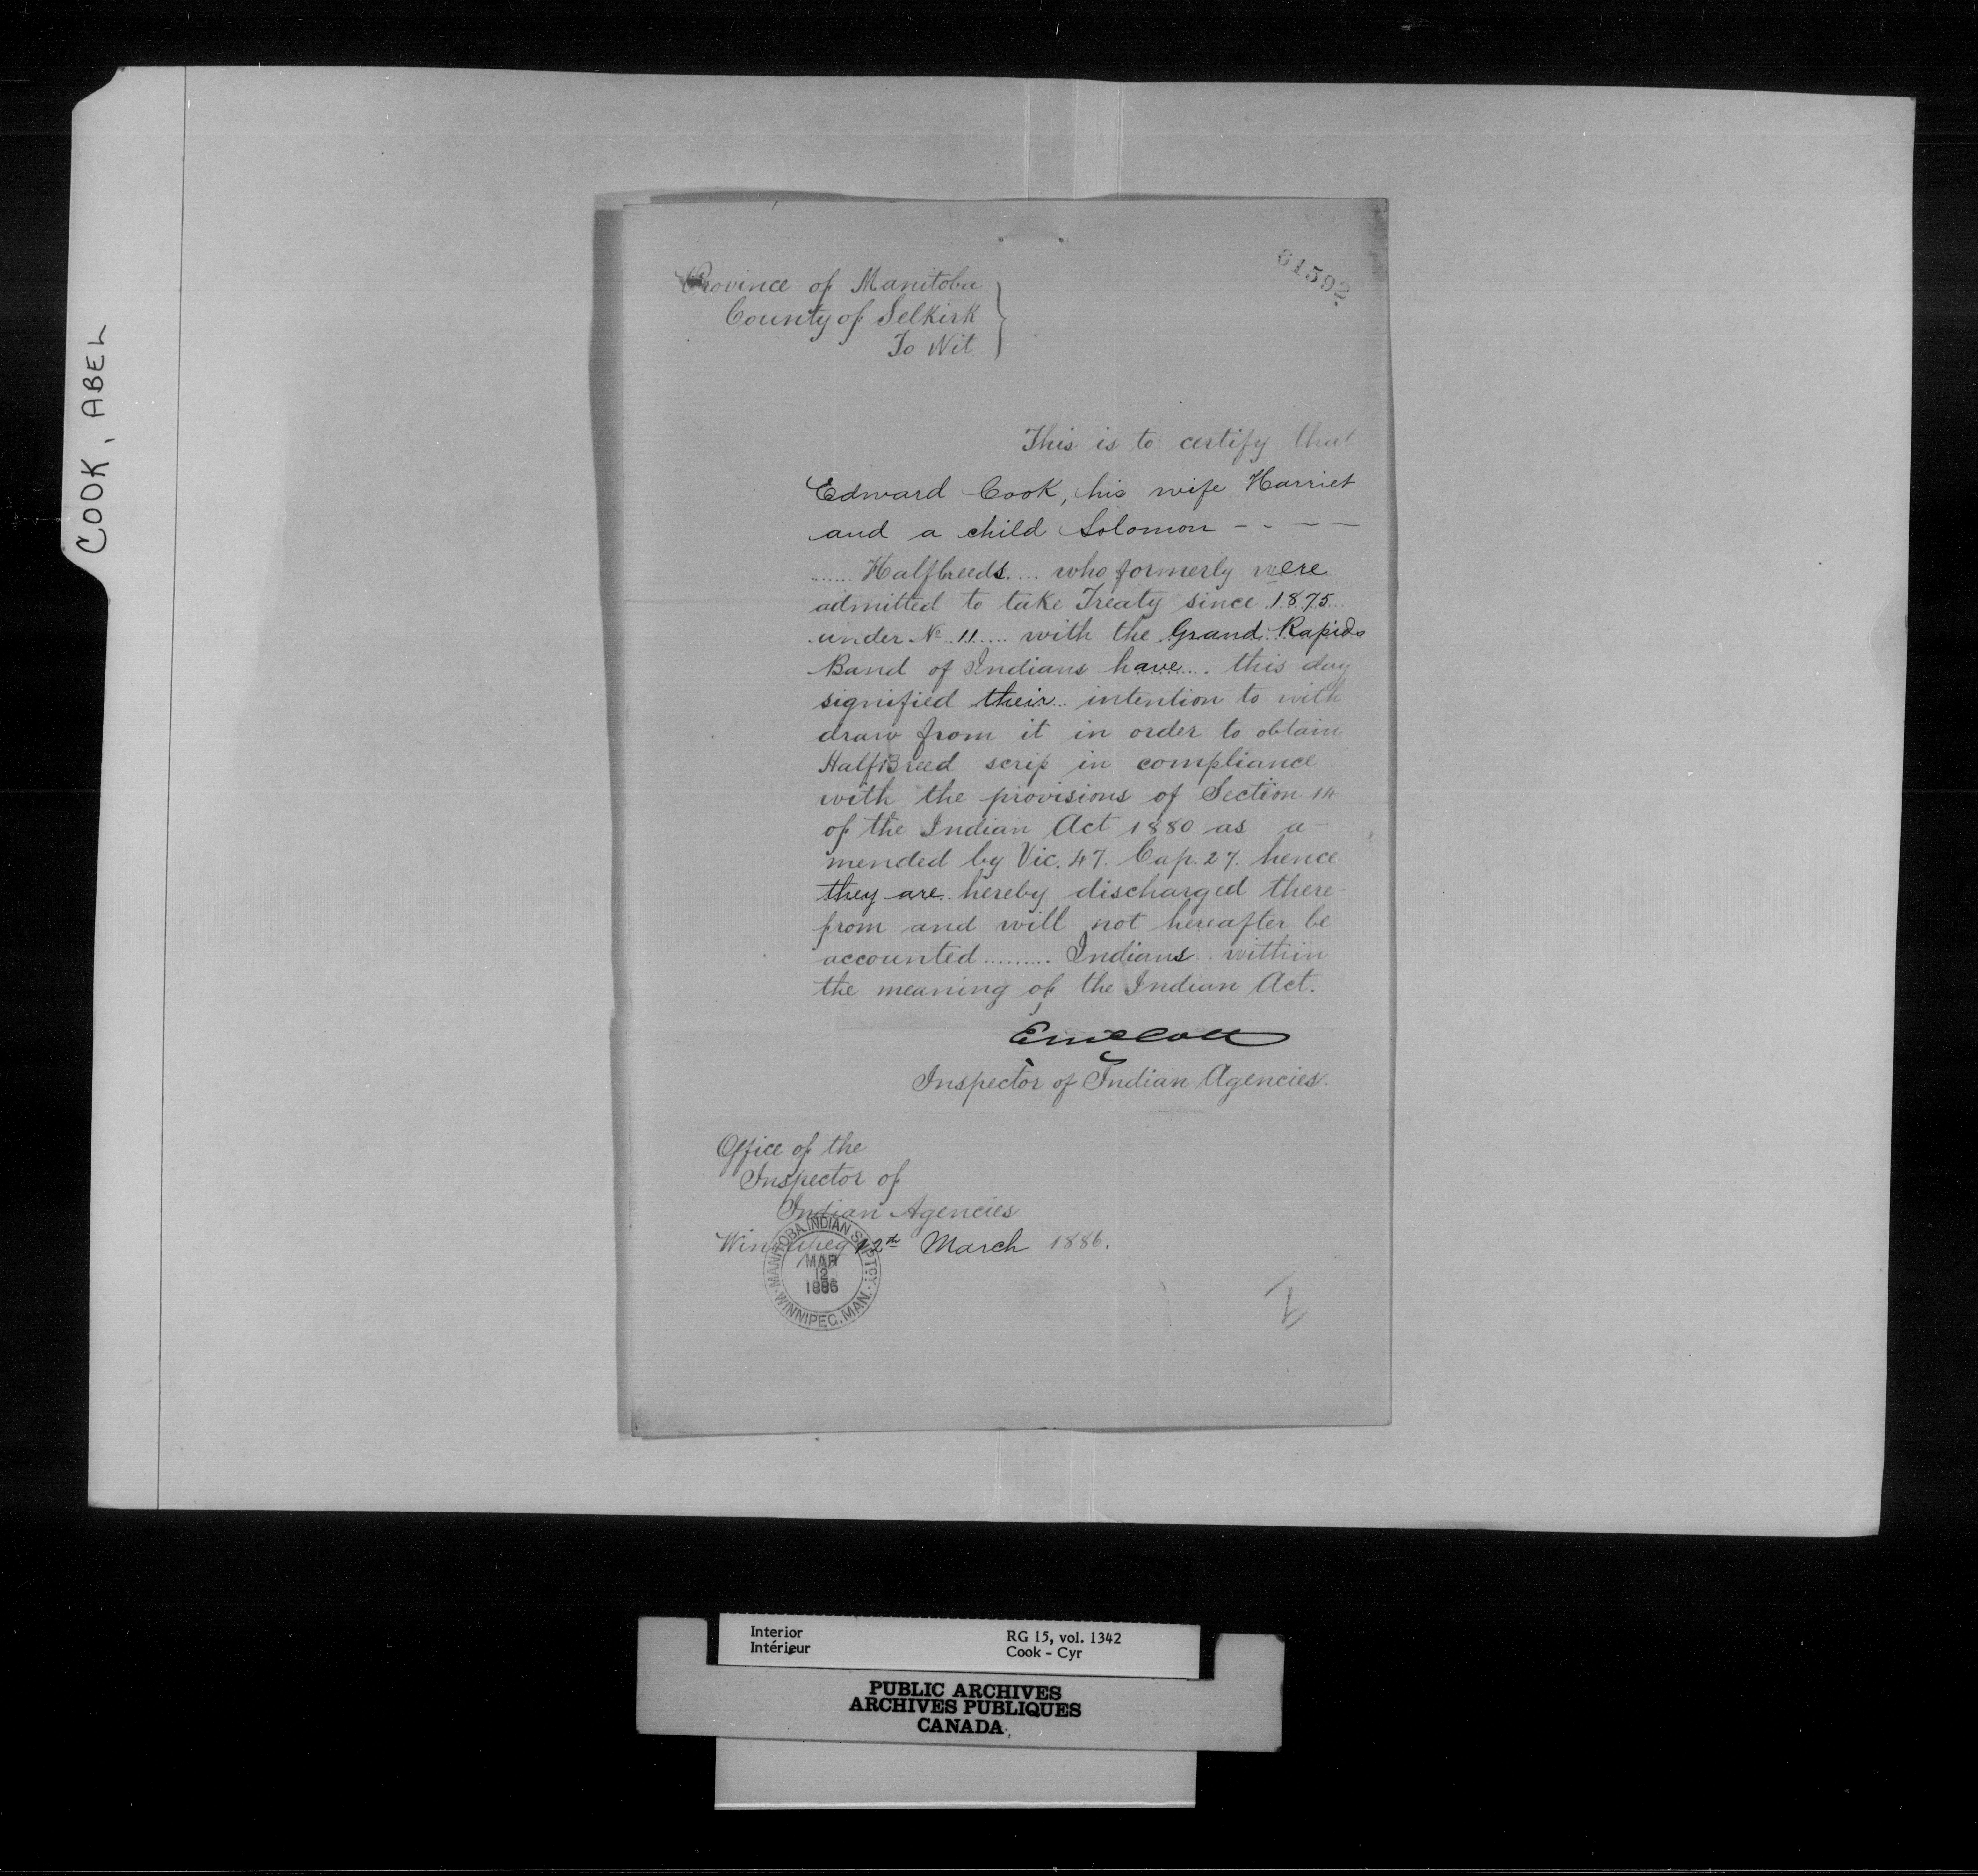 COOK, ABEL
61592.
Province of Manitoba
County of Selkirk
To Wit
This is to certify that
Edward Cook, his wife Harriet
and a child Solomon - - - -
...... Halfbreeds.... who formerly were
admitted to take Treaty since 1875...
under No 11..... with the Grand Rapids
Band of Indians have.... this day
signified their.. intention to with
draw from it in order to obtain
HalfBreed scrip in compliance
with the provisions of Section 14
of the Indian Act 1880 as a-
mended by Vic. 47. Cap. 27. hence
they are hereby discharged there-
from and will not hereafter be
accounted ......... Indians.. within
the meaning of the Indian Act.
Inspector of Indian Agencies.
Office of the
Inspector of
Indian Agencies
Winnipeg 12th March 1886.
MANITOBA INDIAN SUPTCY.
MAR
12
1886
WINNIPEG. MAN.
Interior
Intérieur
RG 15, vol. 1342
Cook - Cyr
PUBLIC ARCHIVES
ARCHIVES PUBLIQUES
CANADA